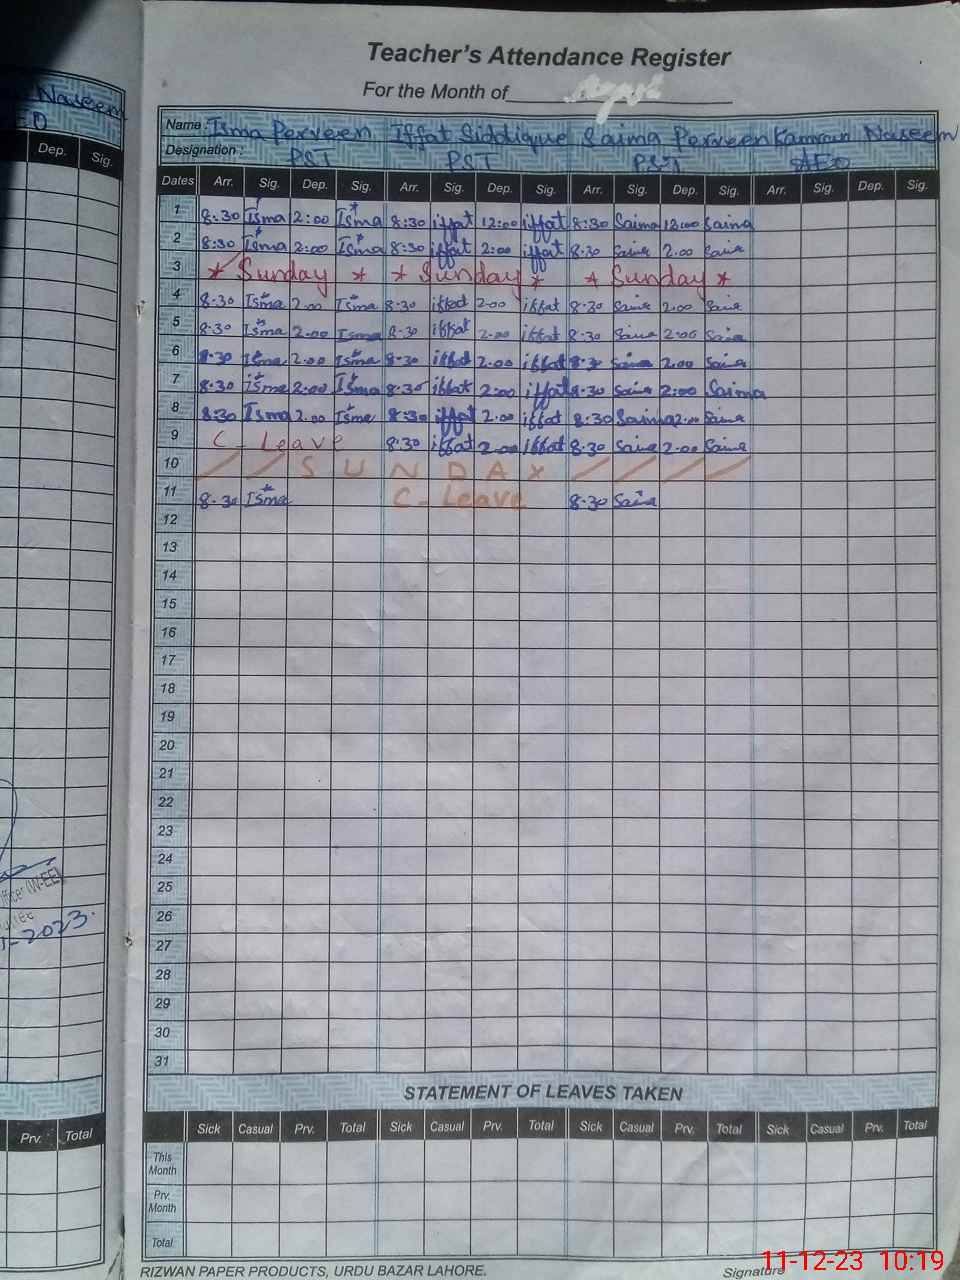 Teacher's Attendance Register
For the Month of
Naseem
Name : Isma Perveen Iffat Siddique Saima Perveen Kamran Naseem
Designation : PST PST PST AEO
Dep. Sig.
Dates Arr. Sig. Dep. Sig. Arr. Sig. Dep. Sig. Arr. Sig. Dep. Sig. Arr. Sig. Dep. Sig.
1 8:30 Isma 2:00 Isma 8:30 iffat 12:00 iffat 8:30 Saima 12:00 Saima
2 8:30 Isma 2:00 Isma 8:30 iffat 2:00 iffat 8.30 Saima 2.00 Saima
3 * Sunday * * Sunday * * Sunday *
4 8.30 Isma 2.00 Isma 8.30 iffat 2.00 iffat 8.30 Saima 2.00 Saima
5 8.30 Isma 2.00 Isma 8.30 iffat 2.00 iffat 8.30 Saima 2.00 Saima
6 8.30 Isma 2.00 Isma 8.30 iffat 2.00 iffat 8.30 Saima 2.00 Saima
7 8.30 Isma 2.00 Isma 8.30 iffat 2:00 iffat 8.30 Saima 2:00 Saima
8 8:30 Isma 2.00 Isma 8:30 iffat 2.00 iffat 8:30 Saima 2.00 Saima
9 C - Leave 8.30 iffat 2.00 iffat 8.30 Saima 2.00 Saima
10 S U N D A Y
11 8.30 Isma C - Leave 8.30 Saima
12
13
14
15
16
17
18
19
20
21
22
23
24
25
26
27
28
29
30
31
Officer (W-EE)
2023.
STATEMENT OF LEAVES TAKEN
Prv. Total
Sick Casual Prv. Total Sick Casual Prv. Total Sick Casual Prv. Total Sick Casual Prv. Total
This Month
Prv. Month
Total
RIZWAN PAPER PRODUCTS, URDU BAZAR LAHORE.
Signature
11-12-23 10:19